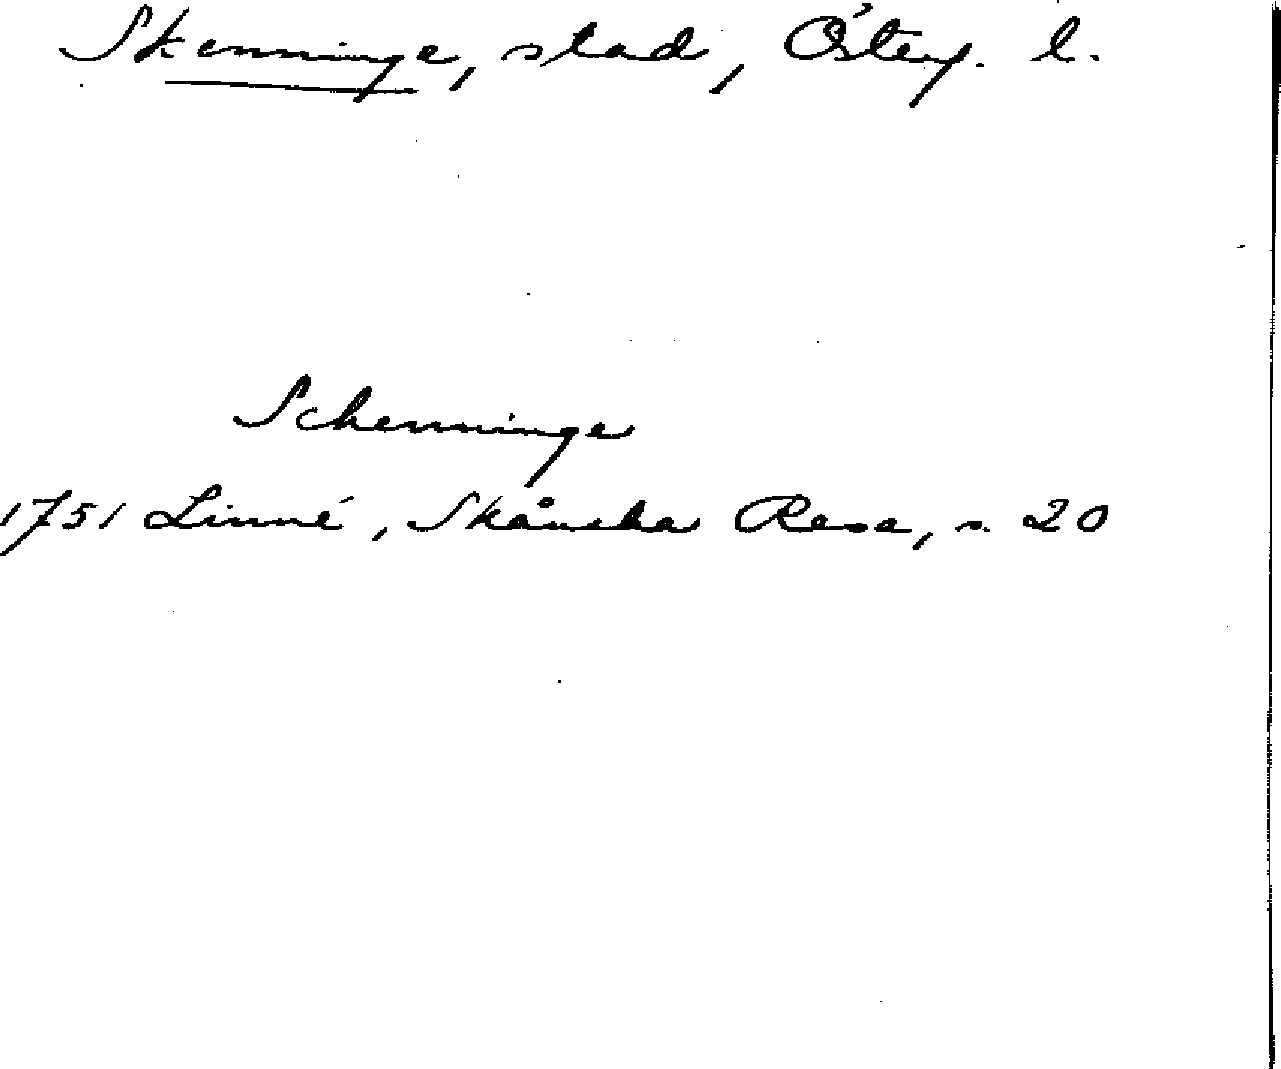 Skenninge, stad, Österg. l.
Schenninge
1751 Linné, Skånska Resa, s. 20